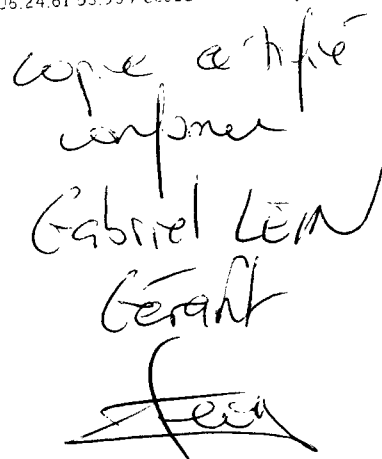 copie certifié
conforme
Gabriel LEIN
Gérant